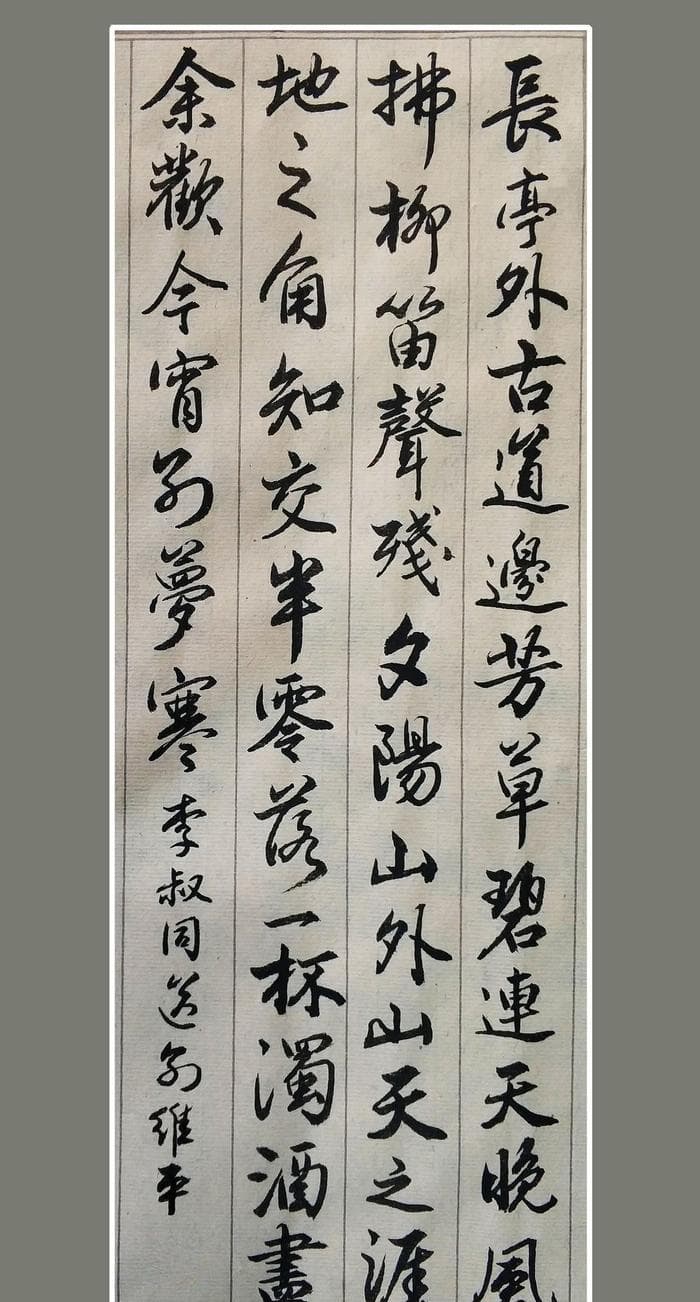 長亭外古道邊芳草碧連天晚風
拂柳笛聲殘夕陽山外山天之涯
地之角知交半零落一杯濁酒盡
余歡今宵別夢寒李叔同送別維平